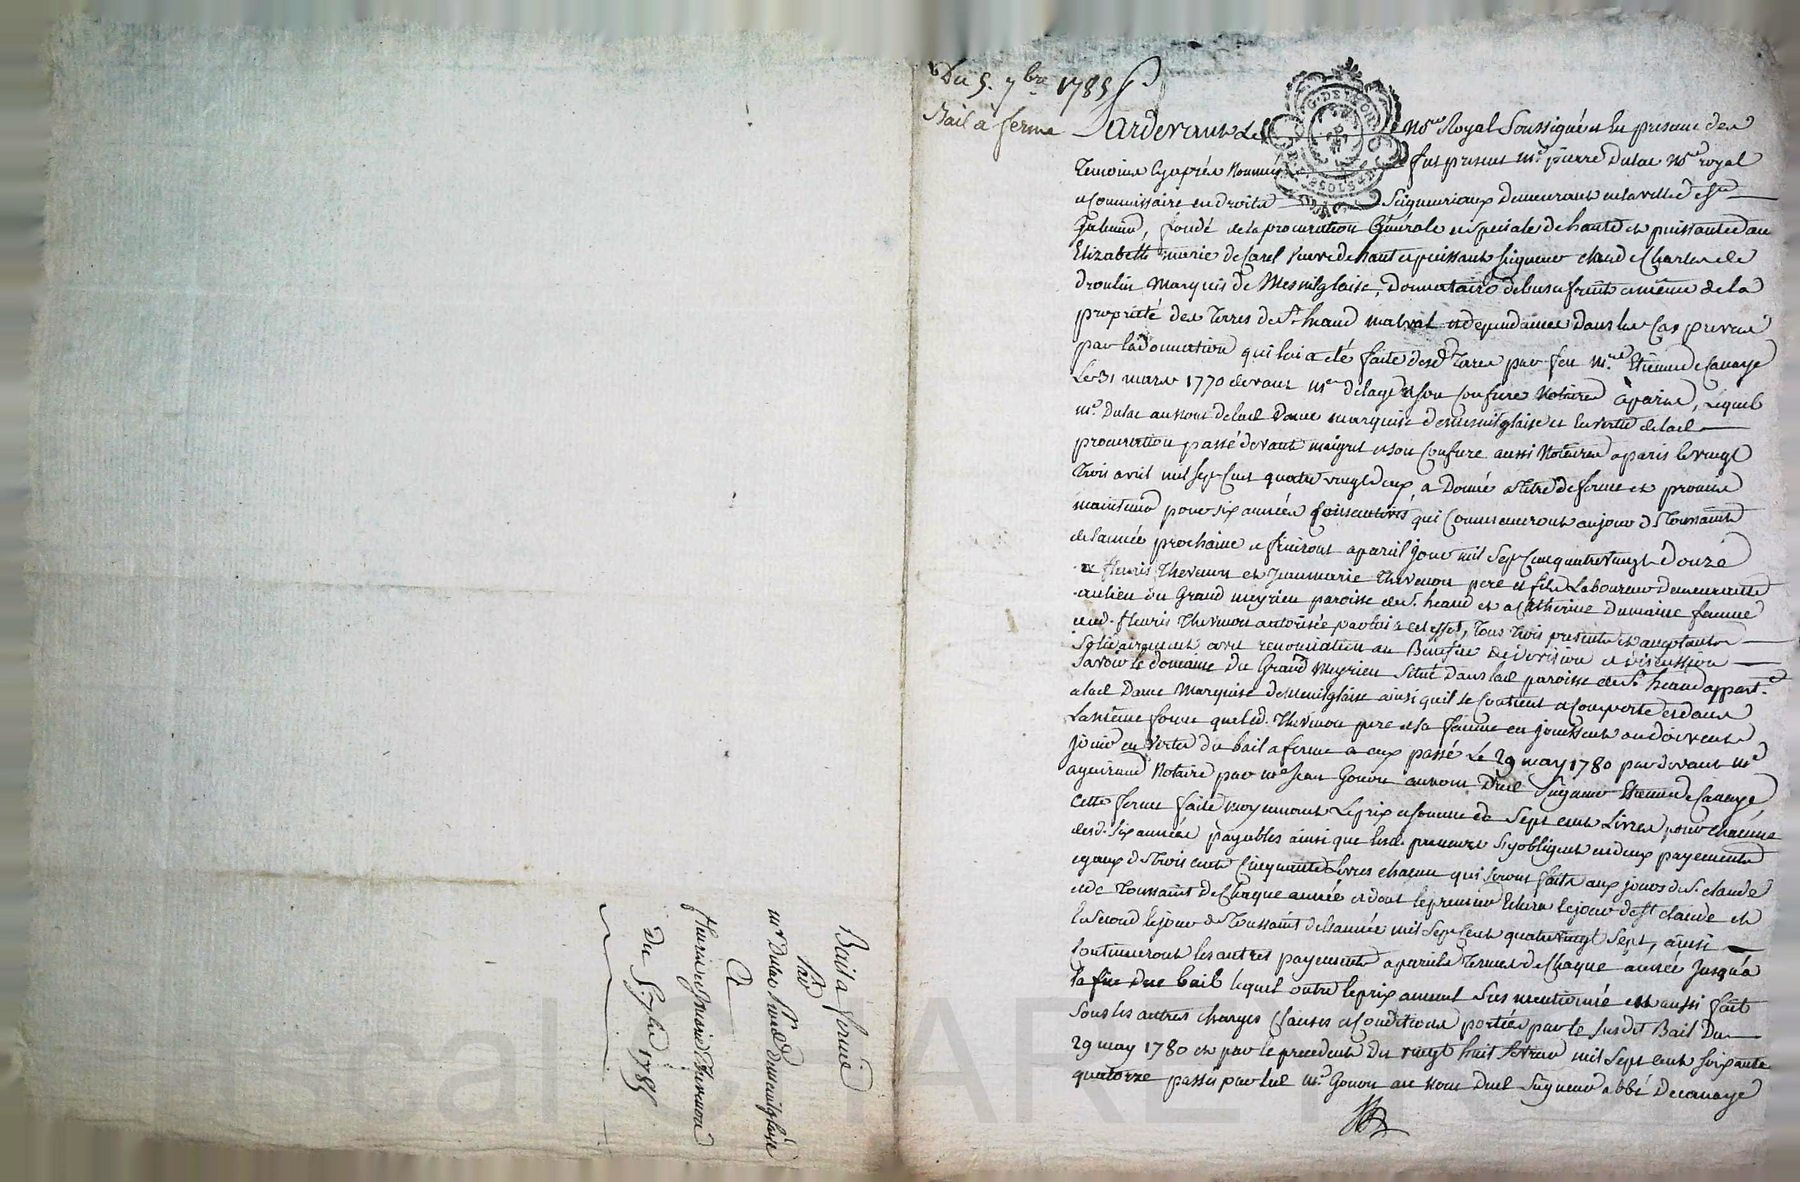 Du 5. 7bre 1785
Bail à ferme
Pardevant Le Nore Royal Soussigné et En presence des
Temoins Cyaprés Nommés fut present Me. pierre Dulac Nore royal
et Commissaire en droits Seigneuriaux Demeurant en la ville de St
Galmier, fondé de la procuration Générale et Speciale de haute et puissante dame
Elizabeth marie de Carel Veuve de haut et puissant Seigneur Claude Charles de
droulin Marquis de Mesnilglaise, Donnataire de l'usufruit et même de la
proprieté des Terres de St. heand Malval et dependances Dans les Cas prevus
par la Donnation qui lui a été faite desd. Terres par feu Mre. Etienne de Canaye
Le 31 mars 1770 devant Me delage et son Confrere Notaires à paris, Lequel
Me. Dulac au nom de lad. Dame marquise de mesnilglaise et En vertu de lad.
procuration passé devant maigret et son Confrere aussi Notaires a paris le vingt
Trois avril mil sept Cent quatre vingt deux, a Donné a titre de ferme et promis
maintenir pour six années Consecutives qui Commenceront au jour de Toussaint
de l'année prochaine et finiront a pareil jour mil Sept Cent quatre vingt Douze
a fleuris Thevenon et Jeanmarie Thevenon pere et fils Laboureurs Demeurants
au lieu du Grand meyrieu paroisse de St. heand et a Catherine Dumaine femme
aud. fleuris Thevenon autorisée par lui a cet effet, Tous Trois presents et acceptants
Solidairement avec renonciation au Benefice de division et discussion
Savoir le domaine du Grand Meyrieu Situé Dans lad. paroisse de St. heand appart.
a lad. Dame Marquise de Mesnilglaise ainsi quil se Contient et Comporte et dans
La même forme que led. Thevenon pere et sa femme en jouissent ou doivent
jouir en vertu du bail a ferme a eux passé Le 29 may 1780 par devant Me
Notaire par Me Jean Gonon au nom Dud. Seigneur Etienne de Canaye
Cette ferme faite moyennant Le prix et somme de Sept cent Livres pour chacune
desd. Six années payables ainsi que lesd. preneurs S'y obligent en deux payements
egaux de Trois cents Cinquante Livres chacun qui seront faits aux jours de St. claude
et de Toussaint de Chaque année et dont le premier Echera le jour de St claude et
le Second le jour de Toussaint de l'année mil Sept Cent quatre vingt Sept, ainsi
Continueront les autres payements a pareils Termes de Chaque année Jusqu'a
la fin dud. bail lequel outre le prix annuel Sus mentionné est aussi fait
Sous les autres charges Clauses et Conditions portées par le Susdit Bail Du
29 may 1780 et par le precedent du vingt huit fevrier mil Sept cent soixante
quatorze passés par led. Me. Gonon au nom Dud. Seigneur abbé Decanaye
Bail a ferme
Par
Mr Dulac
A
fleuris et Jn marie Thevenon
Du 5. 7bre 1785